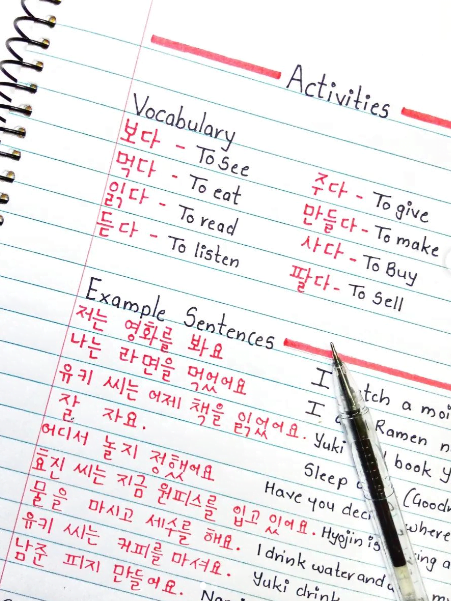 Activities
Vocabulary
보다 - To See
먹다 - To eat
읽다 - To read
듣다 - To listen
주다 - To give
만들다 - To make
사다 - To Buy
팔다 - To Sell
Example Sentences
저는 영화를 봐요
I a
나는 라면을 먹었어요
I Ramen
유키 씨는 어제 책을 읽었어요. Yuki book
잘 자요. Sleep
어디서 놀지 정했어요 Have you where
효진 씨는 지금 원피스를 입고 있어요. Hyojin is a
물을 마시고 세수를 해요. I drink water and
유키 씨는 커피를 마셔요. Yuki drink
남준 피지 만들어요.